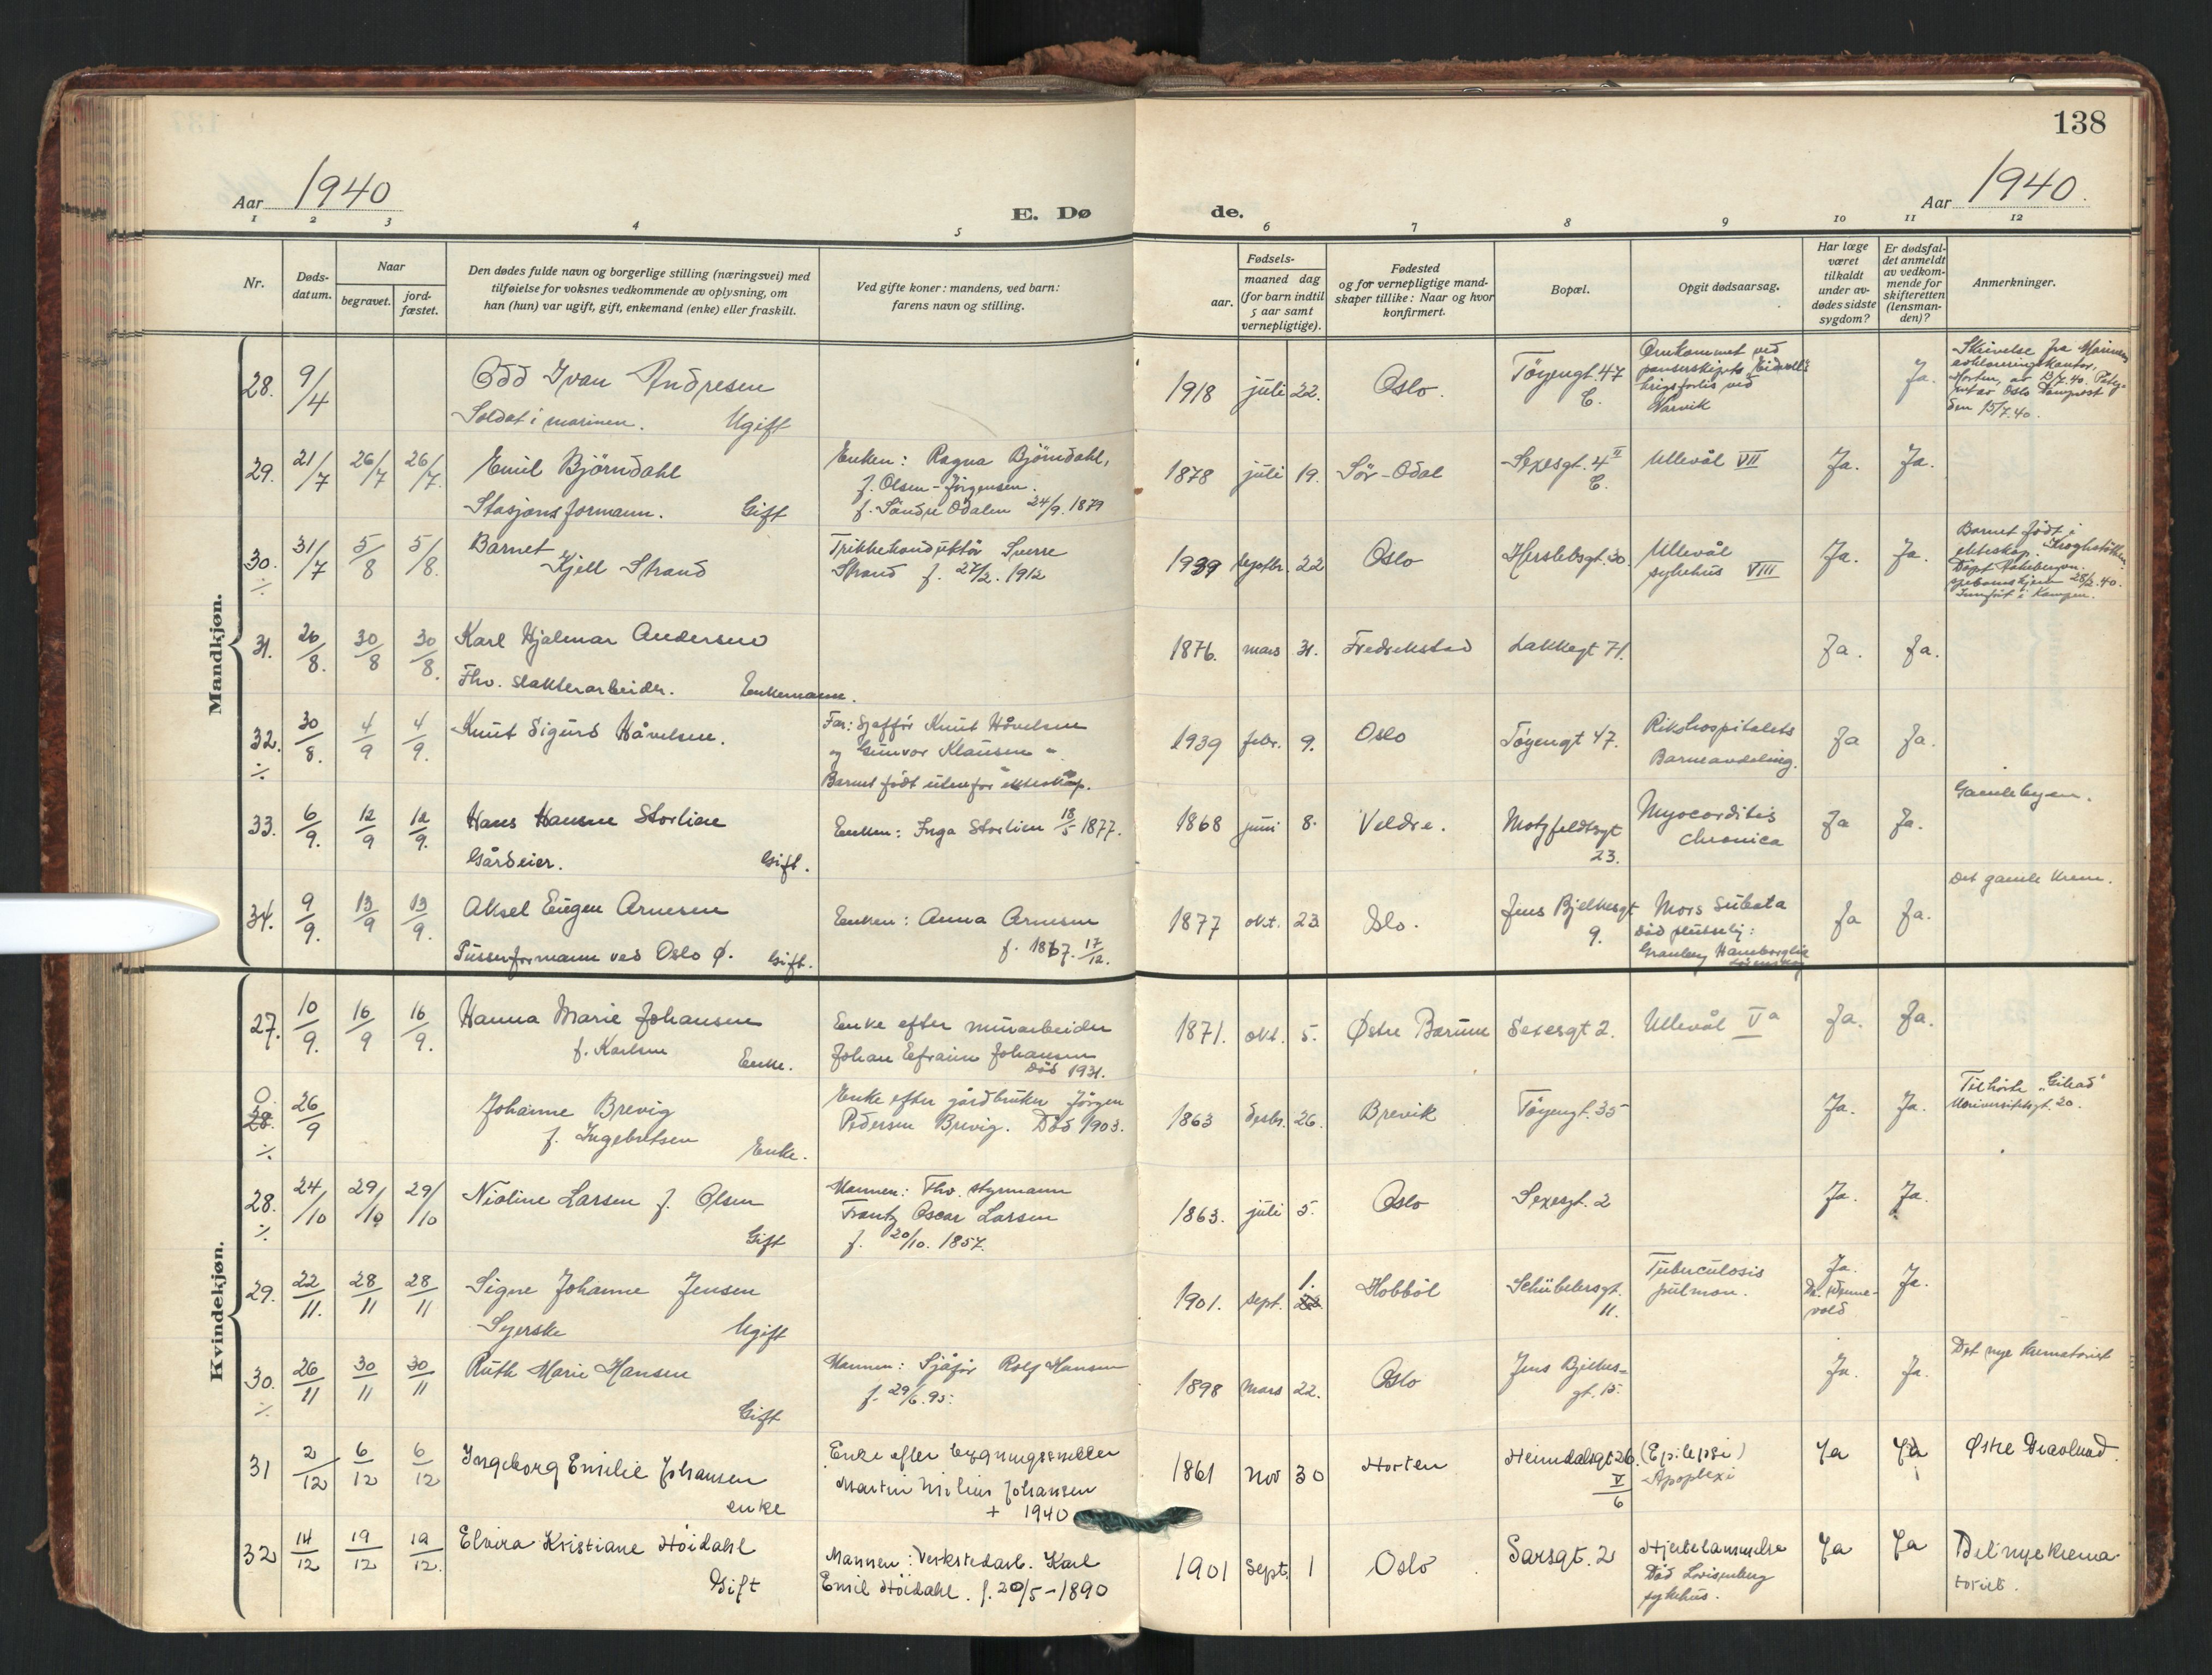 138
Aar 1940
E. Dø
de.
Aar 1940.
1 2 3 4 5 6 7 8 9 10 11 12
Nr.
Døds-
datum.
Naar
begravet.
jord-
fæstet.
Den dødes fulde navn og borgerlige stilling (næringsvei) med
tilføielse for voksnes vedkommende av oplysning, om
han (hun) var ugift, gift, enkemand (enke) eller fraskilt.
Ved gifte koner: mandens, ved barn:
farens navn og stilling.
Fødsels-
aar.
maaned dag
(for barn indtil
5 aar samt
vernepligtige).
Fødested
og for vernepligtige mand-
skaper tillike: Naar og hvor
konfirmert.
Bopæl.
Opgit dødsaarsag.
Har læge
været
tilkaldt
under av-
dødes sidste
sygdom?
Er dødsfal-
det anmeldt
av vedkom-
mende for
skifteretten
(lensman-
den)?
Anmerkninger.
Mandkjøn.
28. 9/4
Odd Ivan Andresen
Soldat i marinen. Ugift
1918 juli 22. Oslo.
Tøyengt. 47
C.
Omkommet ved
panserskipets "Eidsvold"s
krigsforlis ved
Narvik
Ja.
Skrivelse fra Marinens
Horten, av 13/7.40.
den 15/7.40.
29. 21/7 26/7 26/7.
Emil Bjørndahl
Stasjonsformann. Gift
Enken: Ragna Bjørndahl,
f. Olsen-Jørgensen.
f. Søndre Odalen 24/9.1879
1878 juli 19. Sør-Odal
Sexesgt. 4 II
C.
Ullevål VII
Ja. Ja.
30. ÷ 31/7 5/8 5/8.
Barnet
Kjell Strand
Trikkekonduktør Sverre
Strand f. 27/2. 1912
1939 septbr. 22 Oslo
Herslebsgt. 30.
Ullevål
sykehus VIII
Ja. Ja.
Barnet født i
ekteskap.
Døpt
28/2.40.
Innført i Kampen.
31. 26/8. 30/8 30/8.
Karl Hjalmar Andersen
Fhv. slakterarbeider. Enkemann.
1876. mars 31. Fredrikstad
Lakkegt 71.
Ja. Ja.
32. ÷ 30/8. 4/9 4/9.
Knut Sigurd Håvelsen.
Far: Sjafför Knut Håvelsen
og Gunvor Klausen
Barnet født utenfor ekteskap.
1939 febr. 9. Oslo
Tøyengt 47.
Rikshospitalets
Barneavdeling.
Ja Ja.
33. 6/9. 12/9 12/9.
Hans Hansen Storlien
Gårdeier. Gift.
Enken: Inga Storlien 18/5 1877.
1868 juni 8. Veldre.
Motzfeldtsgt
23.
Myocorditis
chronica
Ja Ja.
Gamlebyen.
34. 9/9. 13/9 13/9.
Aksel Eugen Arnesen
Pusserformann ved Oslo Ø. Gift.
Enken: Anna Arnesen
f. 1867. 17/12.
1877 okt. 23 Oslo.
Jens Bjelkesgt
9.
Mors Subata
død plutselig:
Ja Ja.
Det gamle krem.
Kvindekjøn.
27. 10/9. 16/9 16/9.
Hanna Marie Johansen
f. Karlsen Enke.
Enke efter murarbeider
Johan Efraim Johansen
død 1931.
1871. okt. 5. Østre Bærum
Sexesgt 2.
Ullevål Va
Ja. Ja.
0
28. ÷ 26/9
Johanne Brevig
f. Ingebretsen
Enke.
Enke efter gårdbruker Jørgen
Pedersen Brevig. Død 1903.
1863 desbr. 26. Brevik
Tøyengt. 35
Ja. Ja.
Tilhørte "Gilead"
Universitetsgt. 20.
28. ÷ 24/10 29/10 29/10
Nioline Larsen f. Olsen
Gift
Mannen: Fhv. styrmann
Frantz Oscar Larsen
f. 20/10. 1857.
1863. juli 5. Oslo
Sexesgt. 2
Ja. Ja.
29. 22/11. 28/11 28/11
Signe Johanne Jensen
Syerske Ugift
1901. sept. 1. Hobböl
Schübelersgt.
11.
Tuberculosis
pulmon.
Ja.
Ja.
30. ÷ 26/11 30/11 30/11
Ruth Marie Hansen
Gift
Mannen: Sjåfør Rolf Hansen
f. 29/6.95.
1898 mars 22. Oslo
Jens Bjelkes-
gt. 15.
Ja. Ja.
Det nye krematoriet
31 2/12 6/12 6/12
Ingeborg Emilie Johansen
enke
Enke efter bygningssnekker
Martin Milius Johansen
+ 1940
1861 nov 30 Horten
Heimdalsgt 26.
V/6
(Epilepsi)
Apoplexi
Ja Ja
Østre Gravlund.
32 14/12 19/12 19/12.
Elvira Kristiane Höidahl
Gift
Mannen: Verkstedarb. Karl
Emil Höidahl. f. 20/5-1890
1901 sept. 1 Oslo
Sarsgt. 2
Hjertelammelse
Død Lovisenberg
sykehus.
Ja Ja
Det nye krema-
toriet.